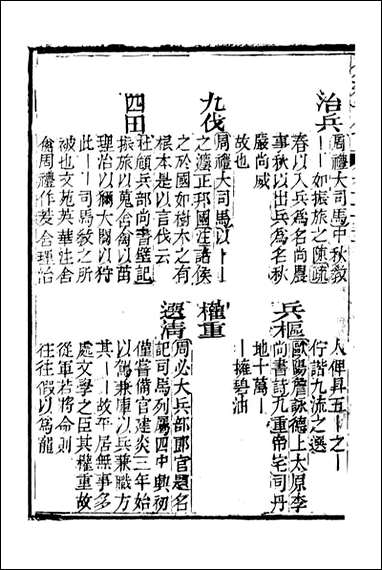 治兵
周禮大司馬中秋教
｜｜如振旅之陳疏
春以入兵爲名尚農
事秋以出兵爲名秋
嚴尚威
故也
九伐
周禮大司馬以｜｜
之灋正邦國注諸侯
之於國如樹木之有
根本是以言伐云
四田
杜顧兵部尚書壁記
振旅以蒐舎禽以苗
理治以獮大閱以狩
此｜｜司馬敎之所
被也文苑英華注舎
禽周禮作茇舎理治
人俾具五｜之｜
佇諧九流之選
兵樞
歐陽詹詠德上太原李
尚書詩九重帝宅司丹
地十萬｜
｜擁碧油
權重
選清
周必大兵部郎官題名
記司馬列屬四中興初
僅嘗備官建炎三年始
以駕兼庫以兵兼職方
其｜｜故平居無事多
處文學之臣其權重故
從軍若將命則
往往假以爲寵